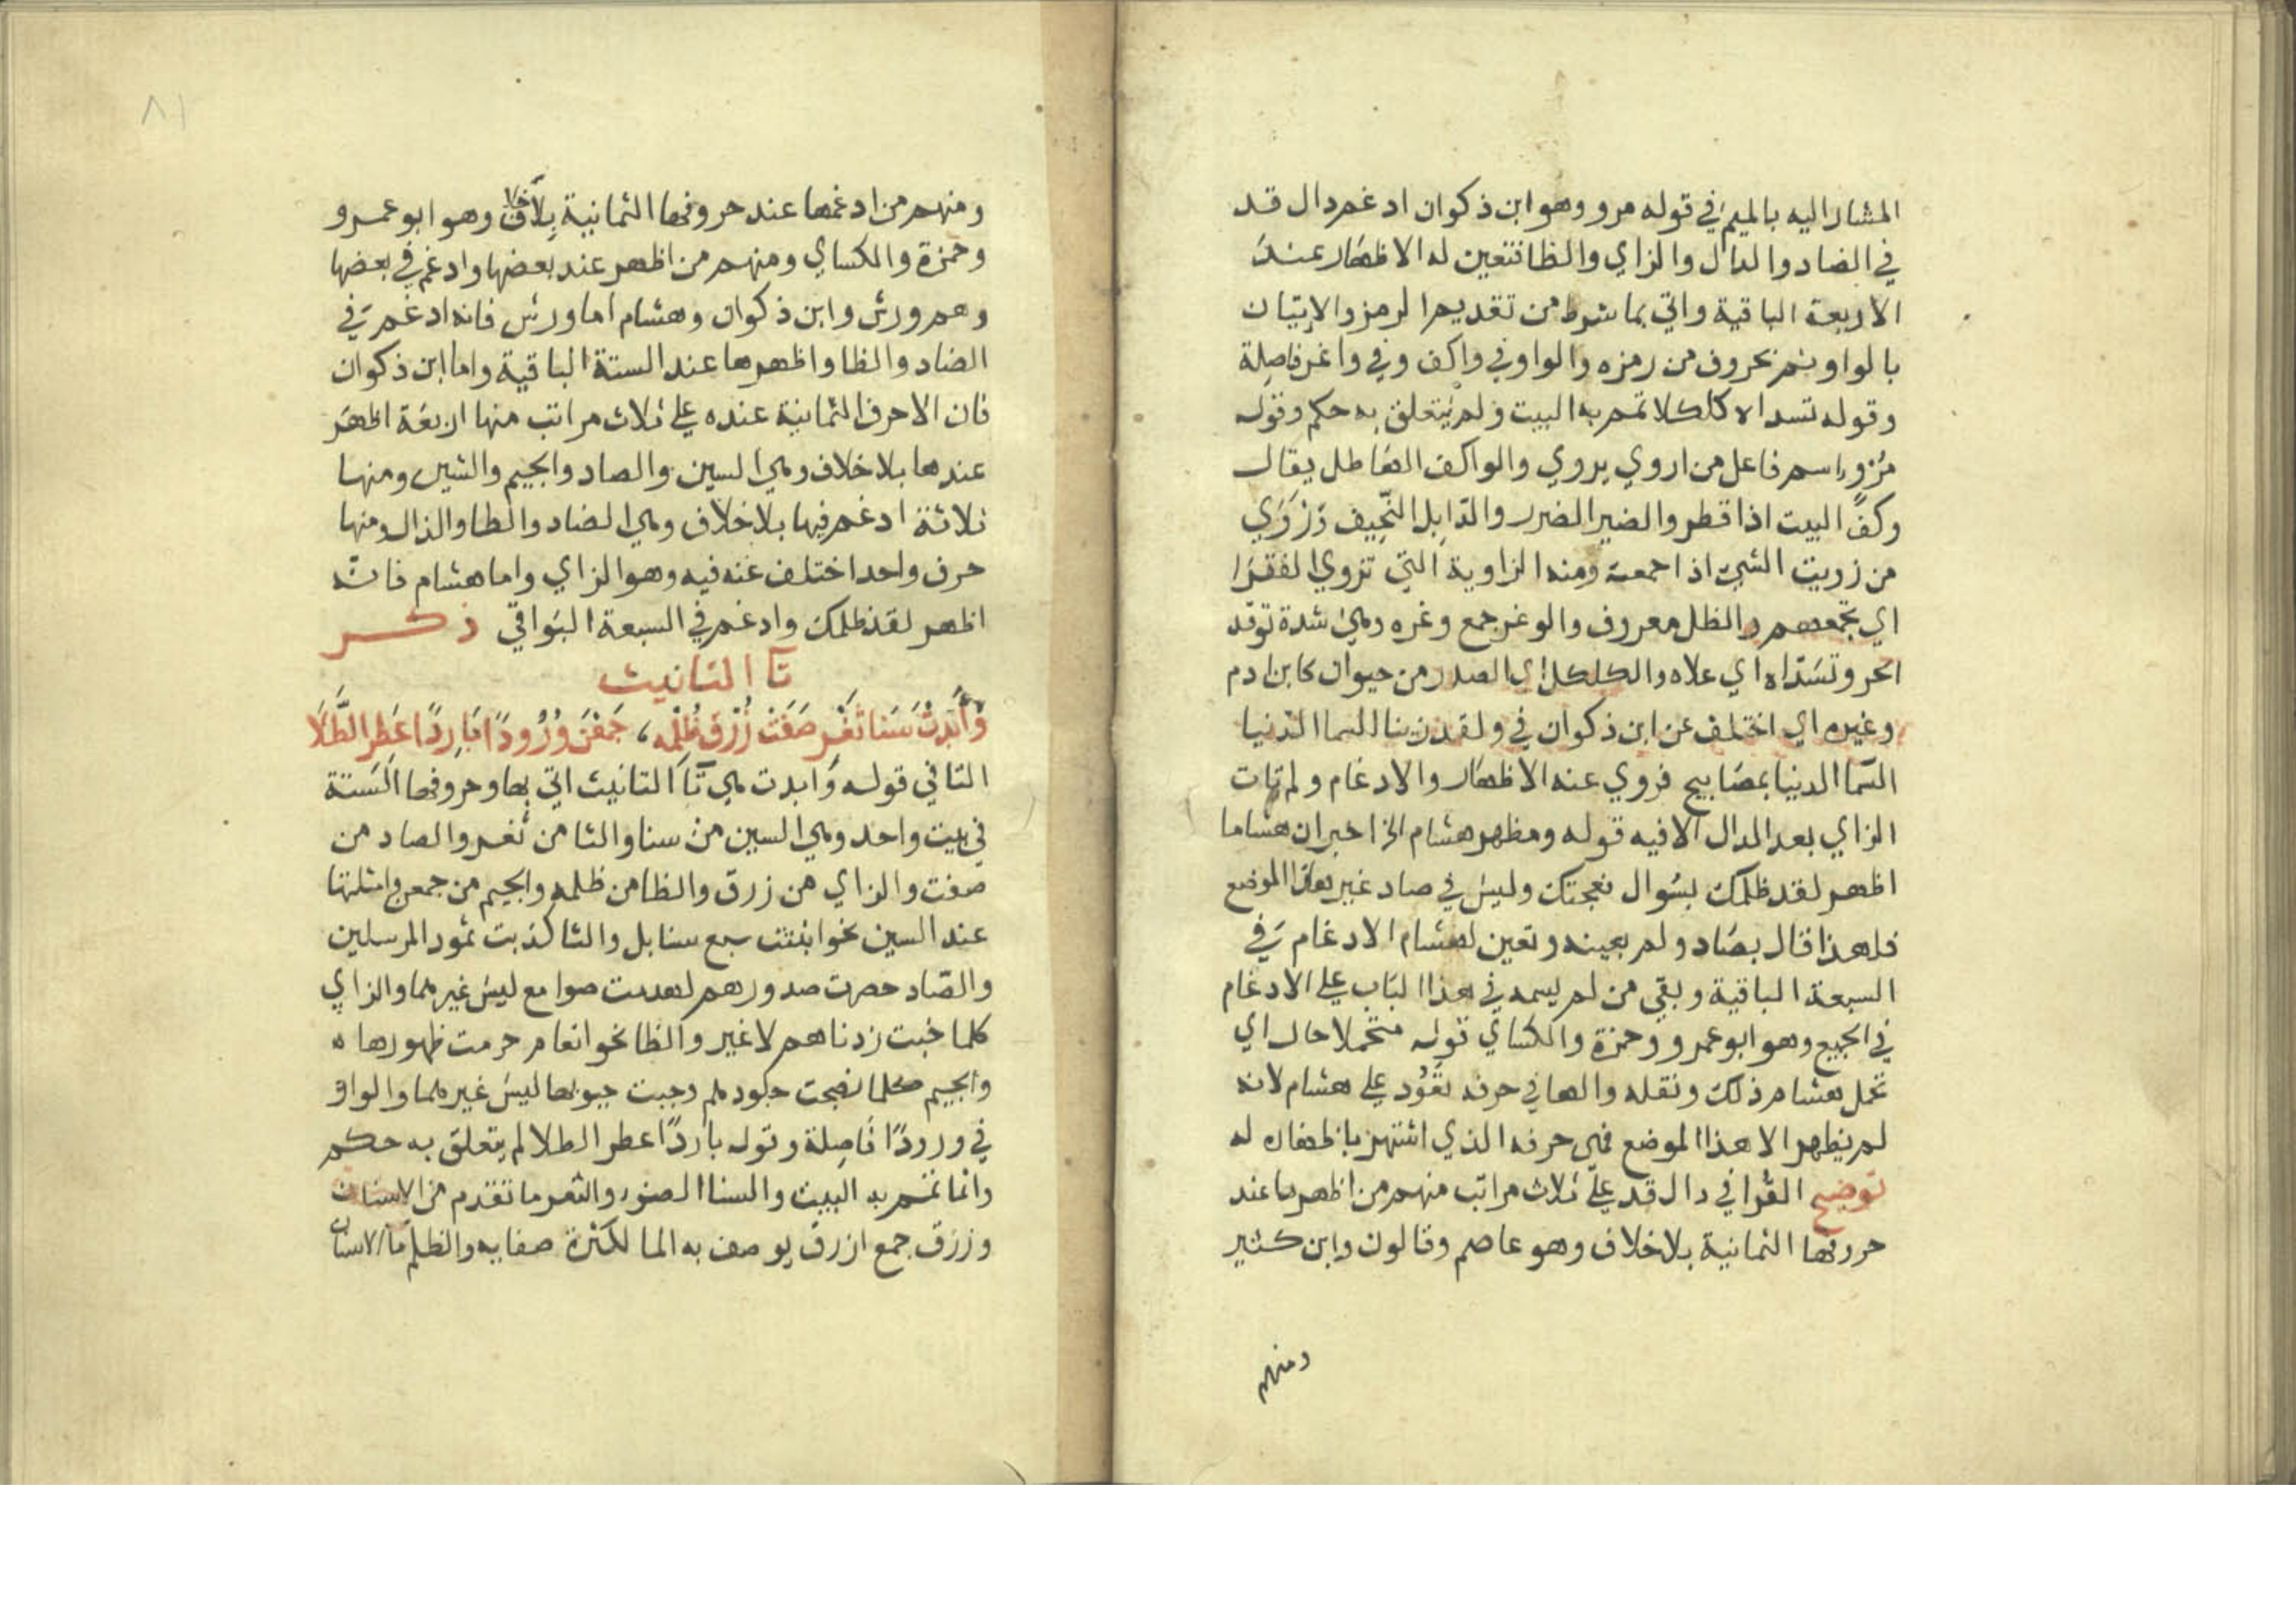 المشار اليه بالميم في قوله مرو وهو ابن ذكوان ادغم دال قد
في الضاد والذال والزاي والظا فتعين له الاظهار عند
الاربعة الباقية واتي بما شرط من تقديم الرمز والاتيان
بالواو ثم بحروف من رمزه والواو في واكف وفي واغر فاصلة
وقوله تسداه كلكلا تمم به البيت ولم يتعلق به حكم وقوله
مرو اسم فاعل من اروي يروي والواكف الهاطل يقال
وكف البيت اذا قطر والضير الضرر والذابل النحيف وزوي
من زويت الشي اذا جمعته ومنه الزاوية التي تزوي الفقرا
اي تجمعهم والظل معروف والوغر جمع وغره وهي شدة توقد
الحر وتسداه اي علاه والكلكل اي الصدر من حيوان كابن ادم
وغيره اي اختلف عن ابن ذكوان في ولقد زينا السما الدنيا
السما الدنيا بمصابيح فروي عنه الاظهار والادغام ولم تات
الزاي بعد الدال الا فيه قوله ومظهر هشام الخ اخبر ان هشاما
اظهر لقد ظلمك بسوال نعجتك وليس في صاد غير هذا الموضع
فلهذا قال بصاد ولم يعينه وتعين لهشام الادغام في
السبعة الباقية وبقي من لم يسمه في هذا الباب علي الادغام
في الجميع وهو ابو عمرو وحمزة والكساي قوله متحملا حال اي
تحمل هشام ذلك ونقله والها في حرفه تعود علي هشام لانه
لم يظهر الا هذا الموضع فهي حرفه الذي اشتهر باظهاره له
توضيح القرا في دال قد علي ثلاث مراتب منهم من اظهرها عند
حروفها الثمانية بلا خلاف وهو عاصم وقالون وابن كثير
ومنهم
٨١
ومنهم من ادغمها عند حروفها الثمانية بلا خلاف وهو ابو عمرو
وحمزة والكساي ومنهم من اظهر عند بعضها وادغم في بعضها
وهم ورش وابن ذكوان وهشام اما ورش فانه ادغم في
الضاد والظا واظهرها عند الستة الباقية واما ابن ذكوان
فان الاحرف الثمانية عنده علي ثلاث مراتب منها اربعة اظهر
عندها بلا خلاف وهي السين والصاد والجيم والشين ومنها
ثلاثة ادغم فيها بلا خلاف وهي الضاد والظا والذال ومنها
حرف واحد اختلف عنه فيه وهو الزاي واما هشام فانه
اظهر لقد ظلمك وادغم في السبعة البواقي ذكر
تا التانيث
وَأَبْدَتْ سَنَا ثَغْرٍ صَفَتْ زُرْقُ ظَلْمِهِ، جَمَعْنَ وُرُودًا بَارِدًا عَطِرَ الطِّلَا
التا في قوله وابدت هي تا التانيث اتي بها وحروفها الستة
في بيت واحد وهي السين من سنا والثا من ثغر والصاد من
صفت والزاي من زرق والظا من ظلمه والجيم من جمعن وامثلتها
عند السين نحو انبتت سبع سنابل والثا كذبت ثمود المرسلين
والصاد حصرت صدورهم لهدمت صوامع ليس غيرهما والزاي
كلما خبت زدناهم لا غير والظا نحو انعام حرمت ظهورها ه
والجيم كلما نضجت جلودهم وجبت جنوبها ليس غيرهما والواو
في ورودًا فاصلة وقوله باردًا عطر الطلا لم يتعلق به حكم
وانما تمم به البيت والسنا الضو والثغر ما تقدم من الاسنان
وزرق جمع ازرق يوصف به الما لكثرة صفايه والظلم ما الاسنان